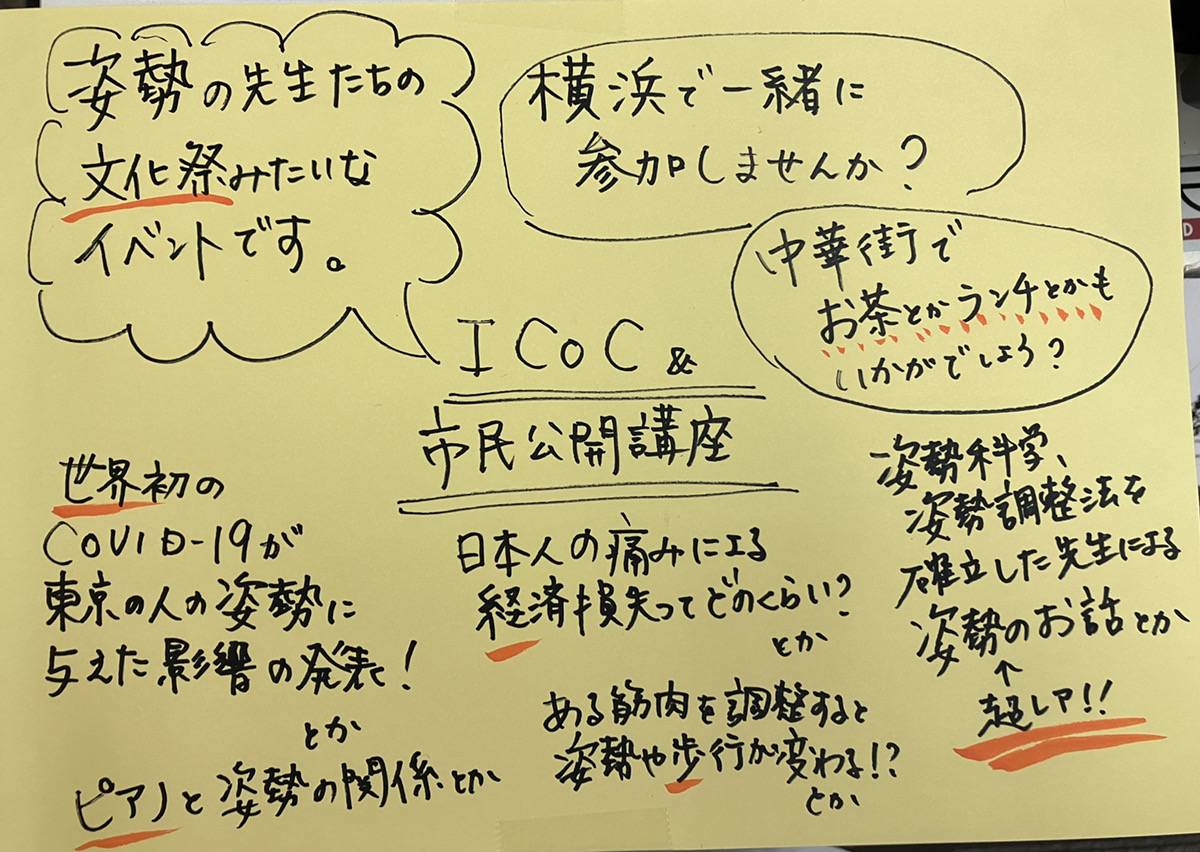 姿勢の先生たちの
文化祭みたいな
イベントです。
横浜で一緒に
参加しませんか?
中華街で
お茶とかランチとかも
いかがでしょう?
ICoC &
市民公開講座
世界初の
COVID-19が
東京の人の姿勢に
与えた影響の発表!
とか
ピアノと姿勢の関係とか
日本人の痛みによる
経済損失ってどのくらい?
とか
ある筋肉を調整すると
姿勢や歩行が変わる!?
とか
姿勢科学、
姿勢調整法を
確立した先生による
姿勢のお話とか
↑
超レア!!
D